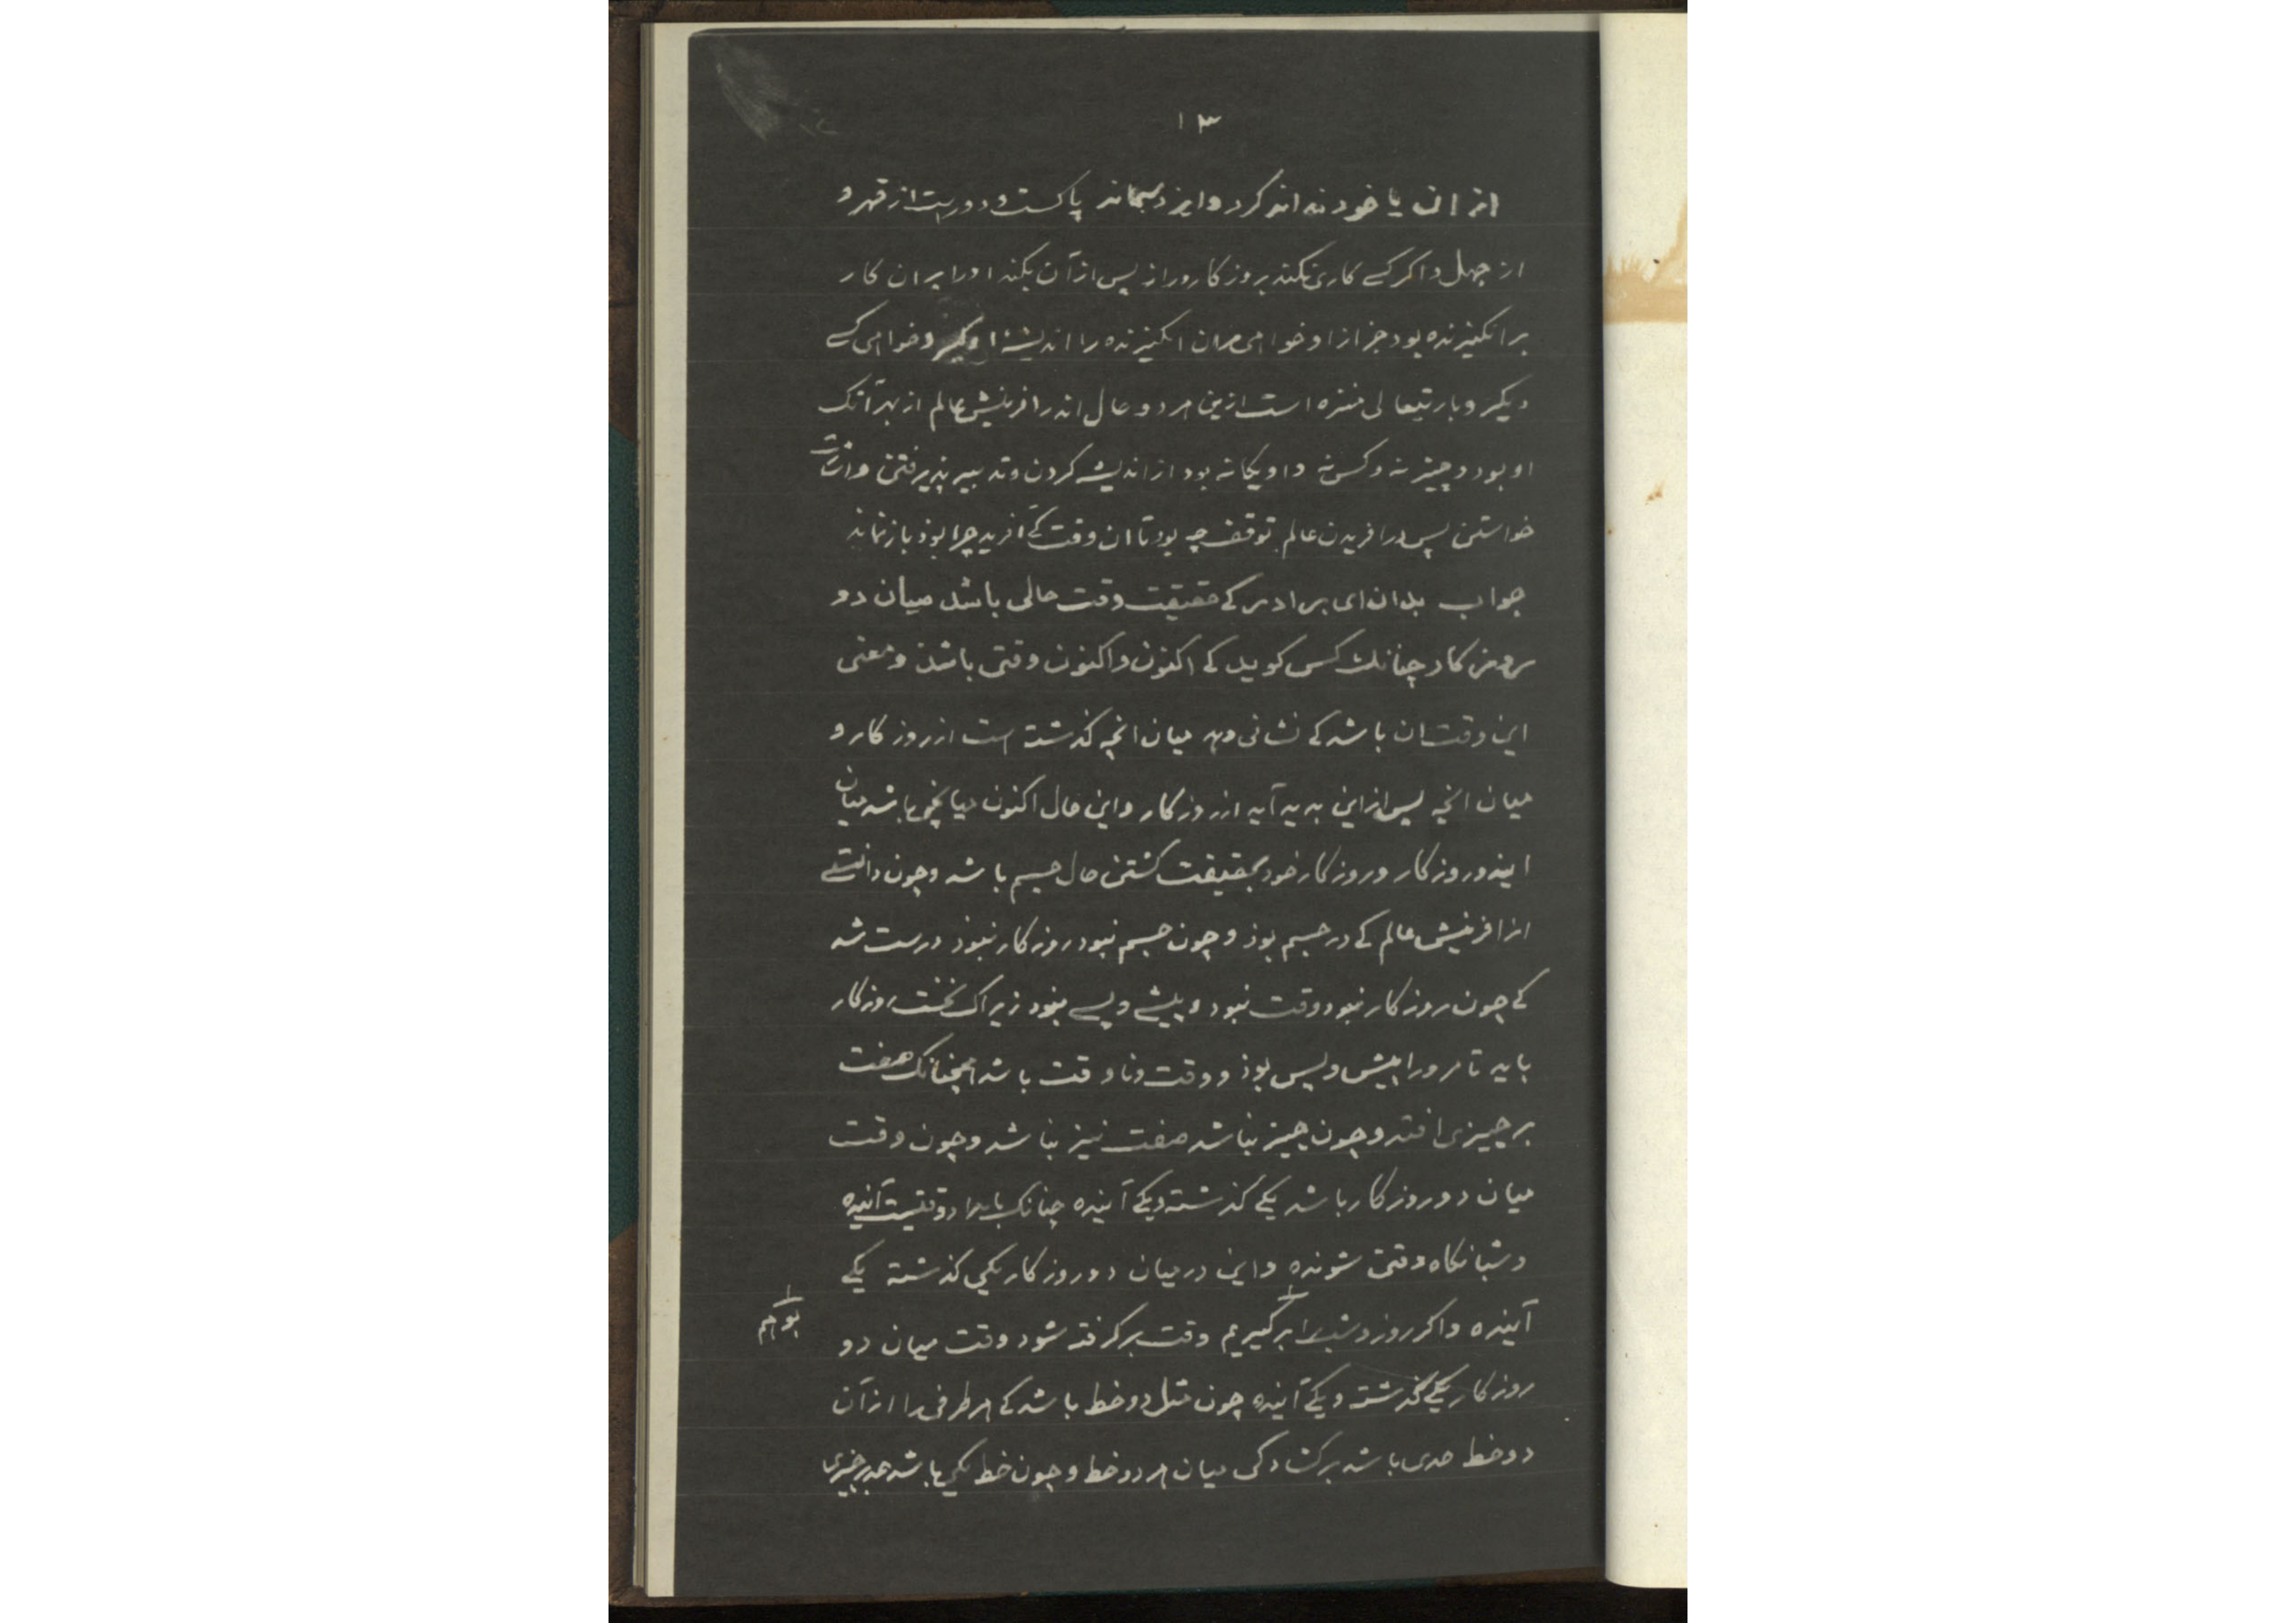 ۱۳
از ان یا خود نداند کرد و ایزد سبحانه پاکست و دورست از قهر و
از جهل و اکر کسے کاری نکند بروزکار دراز پس از آن بکند او را بر ان کار
برانکیزنده بود جز از او خواهی مران انکیزنده را اندیشهٔ او کیر و خواهی کسے
دیکر و باریتعالی منزه است ازین هر دو حال اندر افرینش عالم از بهر آنک
او بود و چیز نه و کس نه و او یکانه بود از اندیشه کردن و تدبیر پذیرفتن و
خواستن پس در افریدن عالم توقف چه بود تا ان وقت کے آفرید چرا بوذ باز نماید
جواب بدان ای برادر کے حقیقت وقت حالی باشد میان دو
روزکار چنانک کس کوید کے اکنون و اکنون وقتی باشذ و معنی
این وقت ان باشد کے نشانی دهد میان انچه کذشته است از روزکار و
میان انچه پس ازاین بدید آید از روزکار و این حال اکنون میانجی باشد میان
ایندو روزکار و روزکار خود بحقیقت کشتن حال جسم باشد و چون دانستے
از افرینش عالم کے در جسم بوذ و چون جسم نبود روزکار نبوذ درست شد
کے چون روزکار نبود وقت نبود و پیشے و پسے نبود زیراک نخست روزکار
باید تا مرورا پیش و پس بوذ و وقت و نا وقت باشد همچنانک صفت
بر چیزی افتد و چون چیز نباشد صفت نیز نباشد و چون وقت
میان دو روزکار باشد یکے کذشته و یکے آینده چنانک بامداد وقتیست آینده
و شبانکاه وقتی شونده و این در میان دو روزکار یکی کذشته یکے
آینده و اکر روز و شب را برکیریم وقت برکرفته شود وقت میان دو
بوهم
روزکار یکے کذشته و یکے آینده چون مثل دو خط باشد کے هر طرفی را از آن
دو خط حدی باشد برکشادکی میان هر دو خط و چون خط یکی باشد